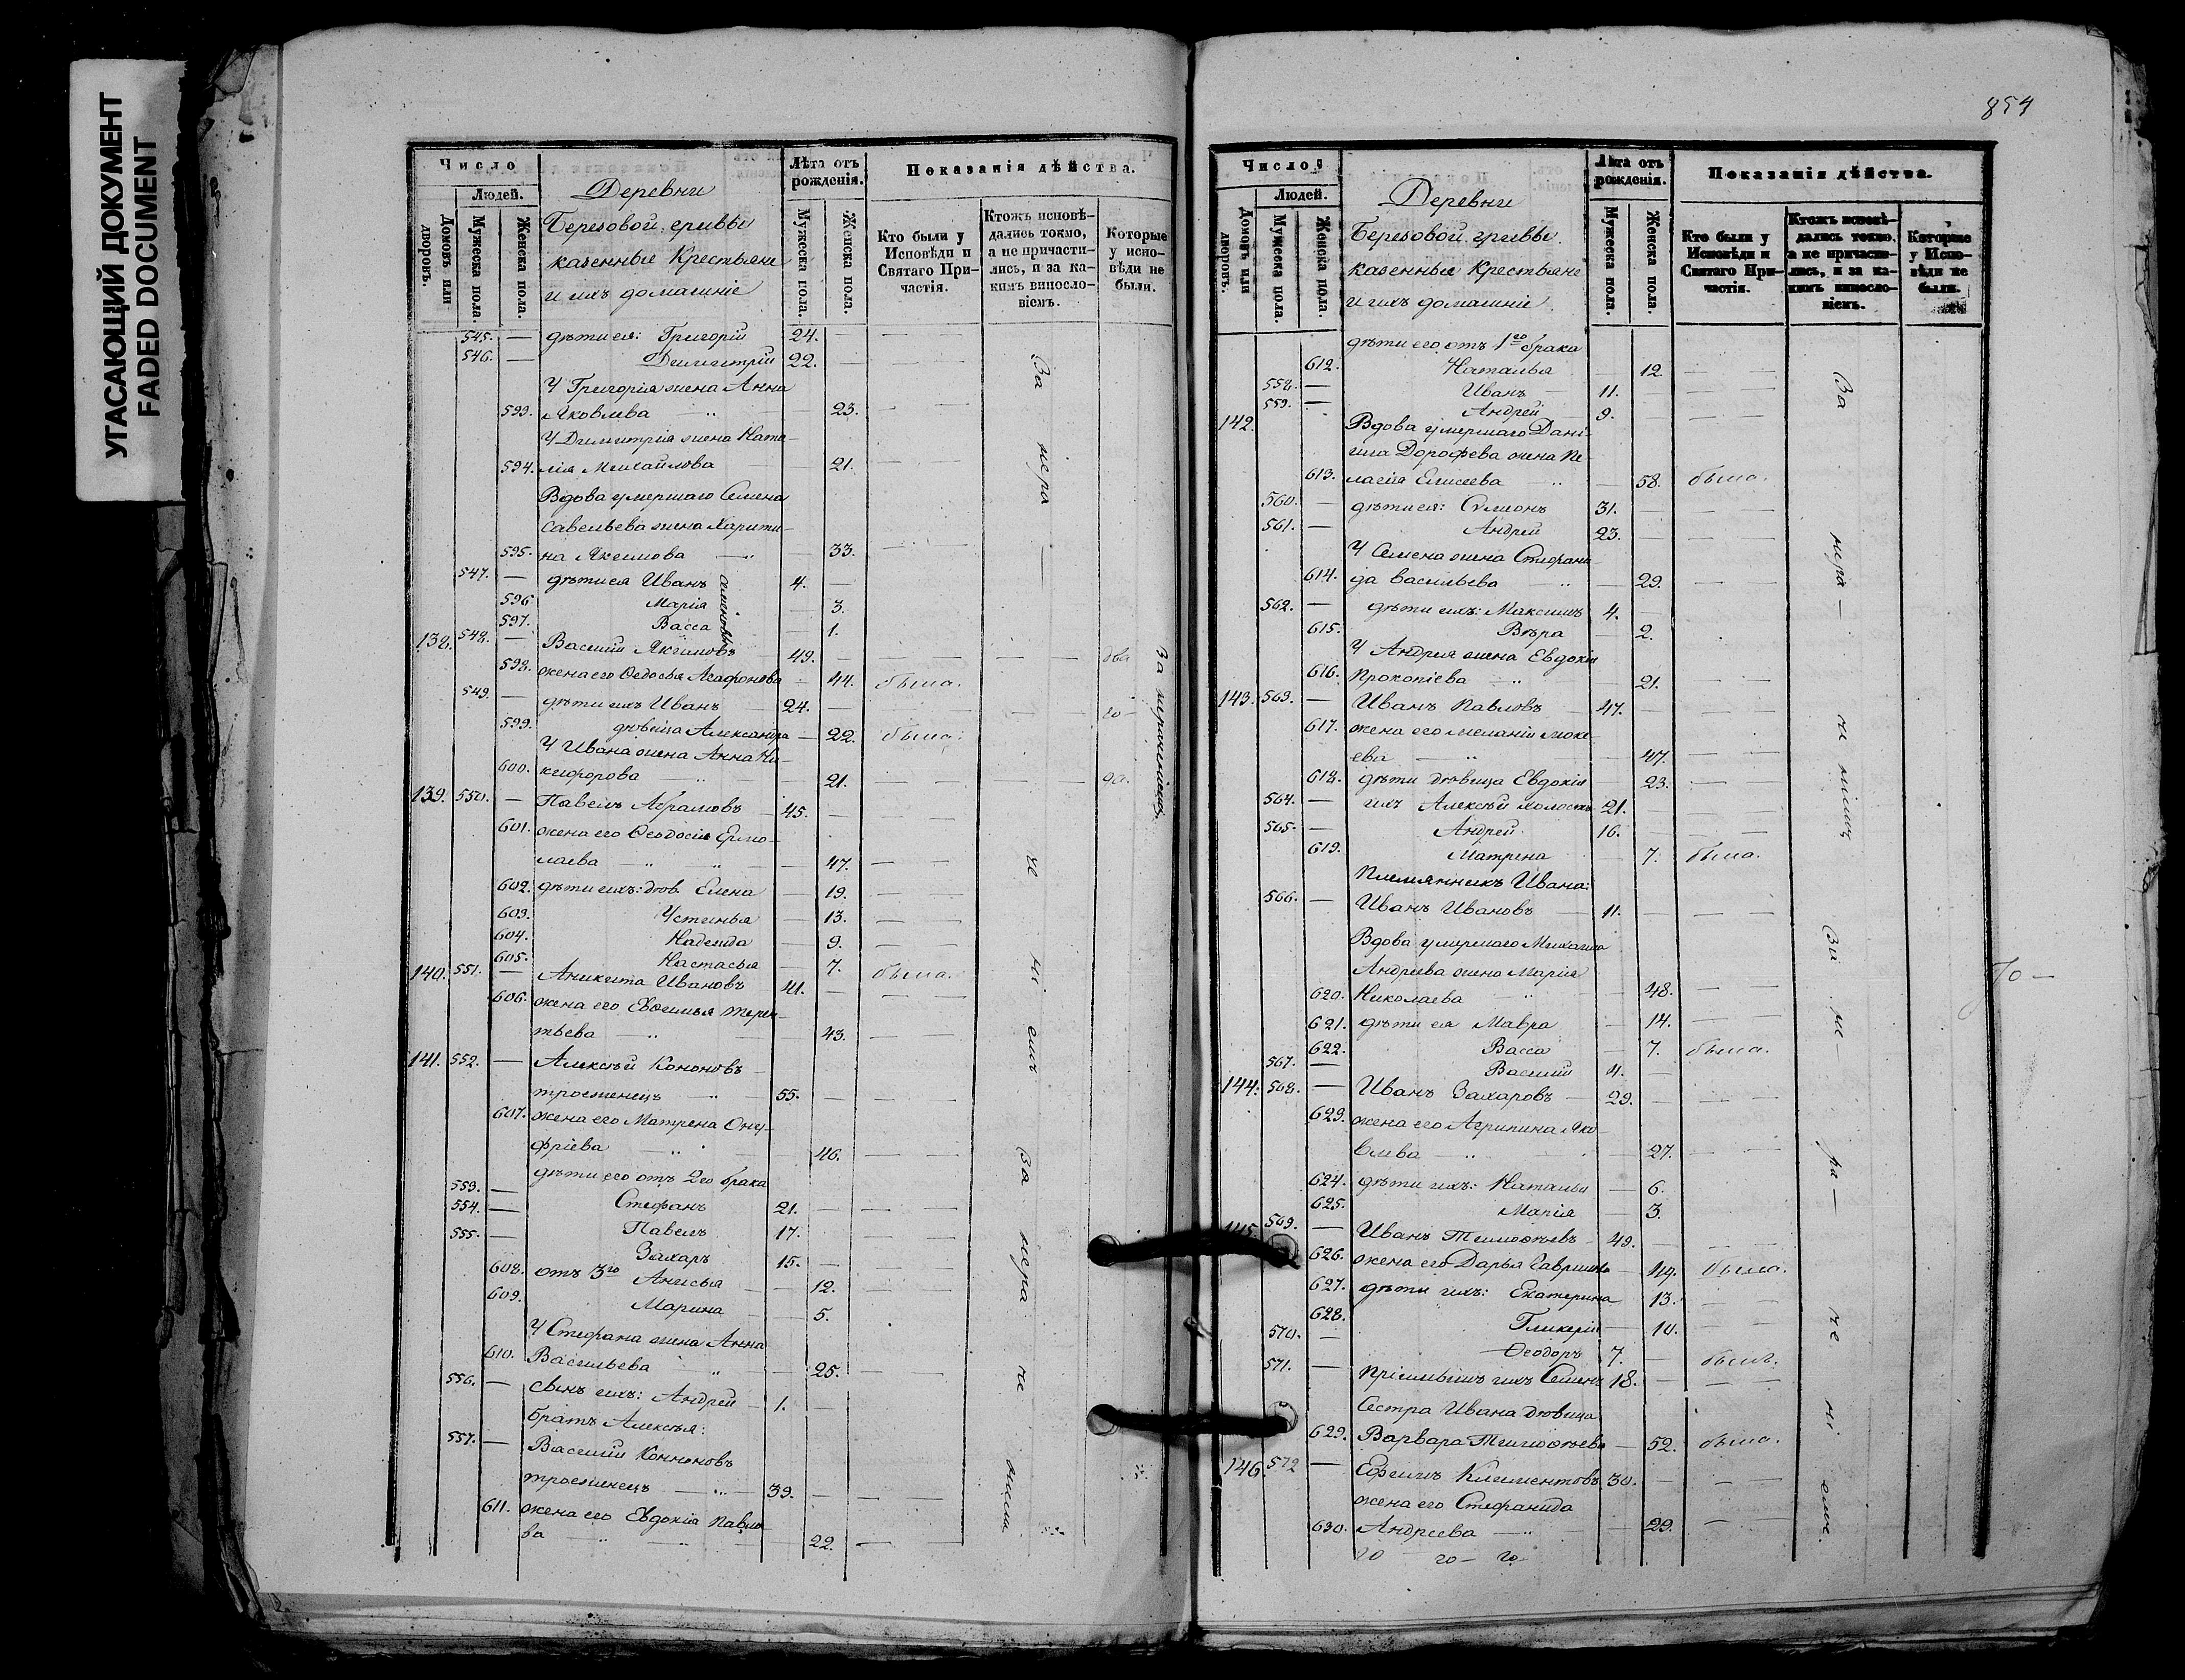 УГАСАЮЩИЙ ДОКУМЕНТ
FADED DOCUMENT
Число
Людей.
Домовъ или дворовъ.
Мужеска пола.
Женска пола.
Деревни
Березовой гривы
казенные Крестьяне
и ихъ домашніе
Лѣта отъ рожденія.
Мужеска пола.
Женска пола.
Показанія дѣйства.
Кто были у
Исповѣди и
Святаго При-
частія.
Ктожъ исповѣ-
дались токмо,
а не причасти-
лись, и за ка-
кимъ винносло-
віемъ.
Которые
у испо-
вѣди не
были.
545. — дѣти ея: Григорій 24.
546. — Димитрій 22.
У Григорія жена Анна
593. Яковлева — 23.
У Димитрія жена Ната-
594. лія Михайлова 21.
Вдова умершаго Семена
Савельева жена Харити-
595. на Якимова — 33.
547. — дѣти ея Иванъ 4.
596 Марія 3.
597. Васса 1.
Семеновы
138. 548. — Василій Якимовъ 49.
598. жена его Федосья Агафонова 44. была.
549. — дѣти ихъ Иванъ — 24.
599. дѣвица Александра — 22. была.
У Ивана жена Анна Ни-
600. кифорова — 21.
139. 550. — Павелъ Абрамовъ — 45.
601. жена его Феодосія Ермо-
лаева — 47.
602. дѣти ихъ: дѣв. Елена — 19.
603. Устинья — 13.
604. Надежда — 9.
605. Настасья — 7. была.
140. 551. — Аникита Ивановъ 41.
606. жена его Евфимья Терен-
тьева — 43.
141. 552. — Алексѣй Кононовъ —
троеженецъ — 55.
607. жена его Матрена Ону-
фріева — 46.
дѣти его отъ 2го брака
553. — Стефанъ 21.
554. — Павелъ 17.
555. — Захаръ 15.
608. отъ 3го Анисья — 12.
609. Марина — 5.
У Стефана жена Анна
610. Васильева — 25.
556. — сынъ ихъ: Андрей — 1.
братъ Алексѣя:
557. — Василій Кононовъ
троеженецъ — 39.
611. жена его Евдокія Павло-
ва — 22.
За нера
За нера
854
Число
Людей.
Домовъ или дворовъ.
Мужеска пола.
Женска пола.
Деревни
Березовой гривы.
казенные Крестьяне
и ихъ домашніе.
Лѣта отъ рожденія.
Мужеска пола.
Женска пола.
Показанія дѣйства.
Кто были у
Исповѣди и
Святаго При-
частія.
Ктожъ исповѣ-
дались токмо,
а не причасти-
лись, и за ка-
кимъ винносло-
віемъ.
Которые
у Испо-
вѣди не
были.
дѣти его отъ 1го брака
612. Наталья 12.
558. — Иванъ — 11.
559. — Андрей 9.
142. Вдова умершаго Дані-
ила Дорофеева жена Пе-
613. лагія Елисеева — 58. была.
560. — дѣти ея: Симіонъ 31.
561. — Андрей 23.
У Семена жена Стефани-
614. да Васильева — 29.
562. — дѣти ихъ: Максимъ 4.
615. Вѣра — 2.
У Андрея жена Евдокія
616. Прокопіева — 21.
143. 563. — Иванъ Павловъ — 47.
617. жена его Меланія Моке-
ева — 47.
618. дѣти дѣвица Евдокія 23.
564. — ихъ Алексѣй холостъ 21.
565. — Андрей 16.
619. Матрена 7. была.
Племянникъ Ивана:
566. — Иванъ Ивановъ — 11.
Вдова умершаго Михаила
Андреева жена Марія
620. Николаева — 48.
621. дѣти ея Мавра 14.
622. Васса — 7. была.
567. — Василій 4.
144. 568. — Иванъ Захаровъ — 29.
623. жена его Агрипина Яко-
влева — 27.
624. дѣти ихъ: Наталья — 6.
625. Марія — 3.
145. 569. — Иванъ Тимофѣевъ — 49.
626. жена его Дарья Гаврилова — 44. была.
627. дѣти ихъ: Екатерина 13.
628. Гликерія — 10.
570. — Феодоръ 7. — былъ.
571. — Пріемышъ ихъ Семенъ 18.
Сестра Ивана дѣвица
629. Варвара Тимофѣева — 52. была.
146. 572 — Ефимъ Климентовъ 30.
жена его Стефанида
630. Андреева — 29.
За нера —
За не — ра —